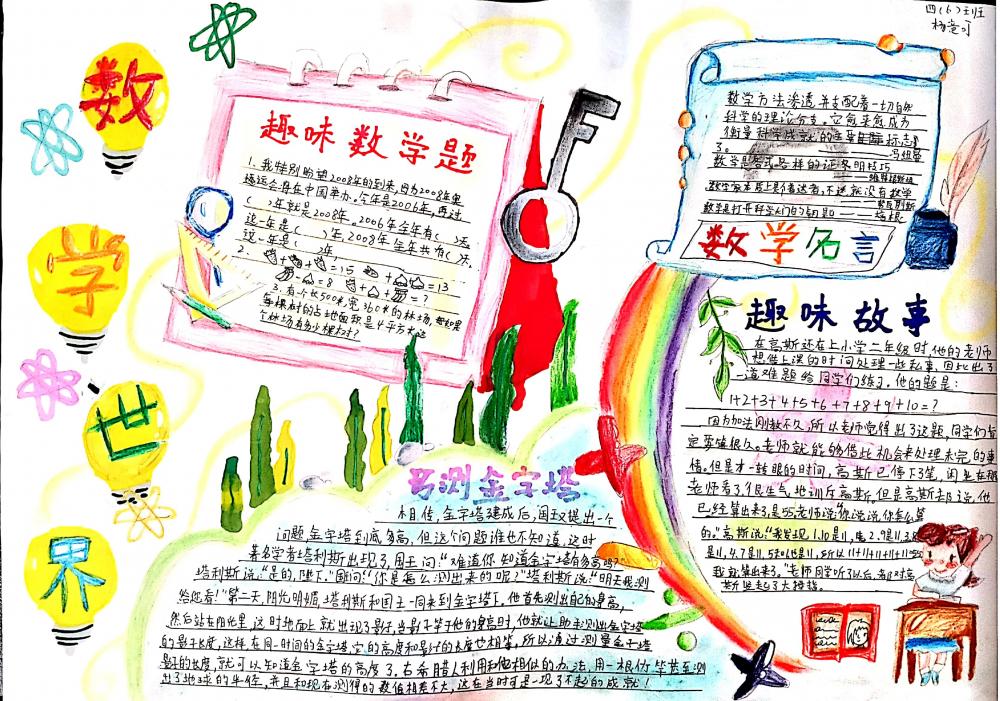 四(6)班
杨意可
数
学
世
界
趣味数学题
1.我特别盼望2008年的到来,因为2008年奥
运会将在中国举办。今年是2006年,再过
( )年就是2008年。2006年全年有( )天,
这一年是( )年,2008年全年共有( )天,
这一年是( )年。
2. + + =15 + =13
- =8 + + =?
3.有一个长500米,宽360米的林场,
每棵树的占地面积是4平方米,这
个林场有多少棵树?
数学方法渗透并支配着一切自然
科学的理论分支。它愈来愈成为
衡量科学成就的主要标志
了。 ——冯纽曼
数学是各式各样的证明技巧
——维特根斯坦
数学是打开科学大门的钥匙——培根
数学名言
趣味故事
在高斯还在上小学二年级时,他的老师
想借上课的时间处理一些私事,因此出了
一道难题给同学们练习。他的题是:
1+2+3+4+5+6+7+8+9+10=?
因为加法刚教不久,所以老师觉得出了这题,同学们肯
定要算很久。老师就能够借此机会来处理未完的事
情。但是才一转眼的时间,高斯已停下了笔,闲坐在那
老师看了很生气地训斥高斯,但是高斯却说,他
已经算出来了,是55,老师说“你说说你怎么算
的。”高斯说:“我发现1,10是11,2,9是11,3,8
是11,4,7是11,5和6也是11,所以11+11+11+11+11=55
我就算出来了。”老师同学听了以后,都对高
斯竖起了大拇指。
另测金字塔
相传,金字塔建成后,国王提出一个
问题金字塔到底多高,但这个问题谁也不知道,这时
著名学者塔利斯出现了,国王问:“难道你知道金字塔有多高吗?
塔利斯说:“是的,陛下。”国王问:“你是怎么测出来的呢?”塔利斯说:“明天我测
给您看!”第二天,阳光明媚,塔利斯和国王一同来到金字塔下。他首先测出自己的身高,
然后站在阳光里,这时地面上就出现了影子,当影子等于他的身高时,他就让助手测出金字塔
的影子长度,这样在同一时间的金字塔,它的高度和影子的长度也相等,所以通过测量金字塔
影子的长度,就可以知道金字塔的高度了。古希腊人利用和他相似的办法,用一根竹竿甚至测
出了地球的半径,并且和现在测得的数值相差不大,这在当时可是一项了不起的成就!